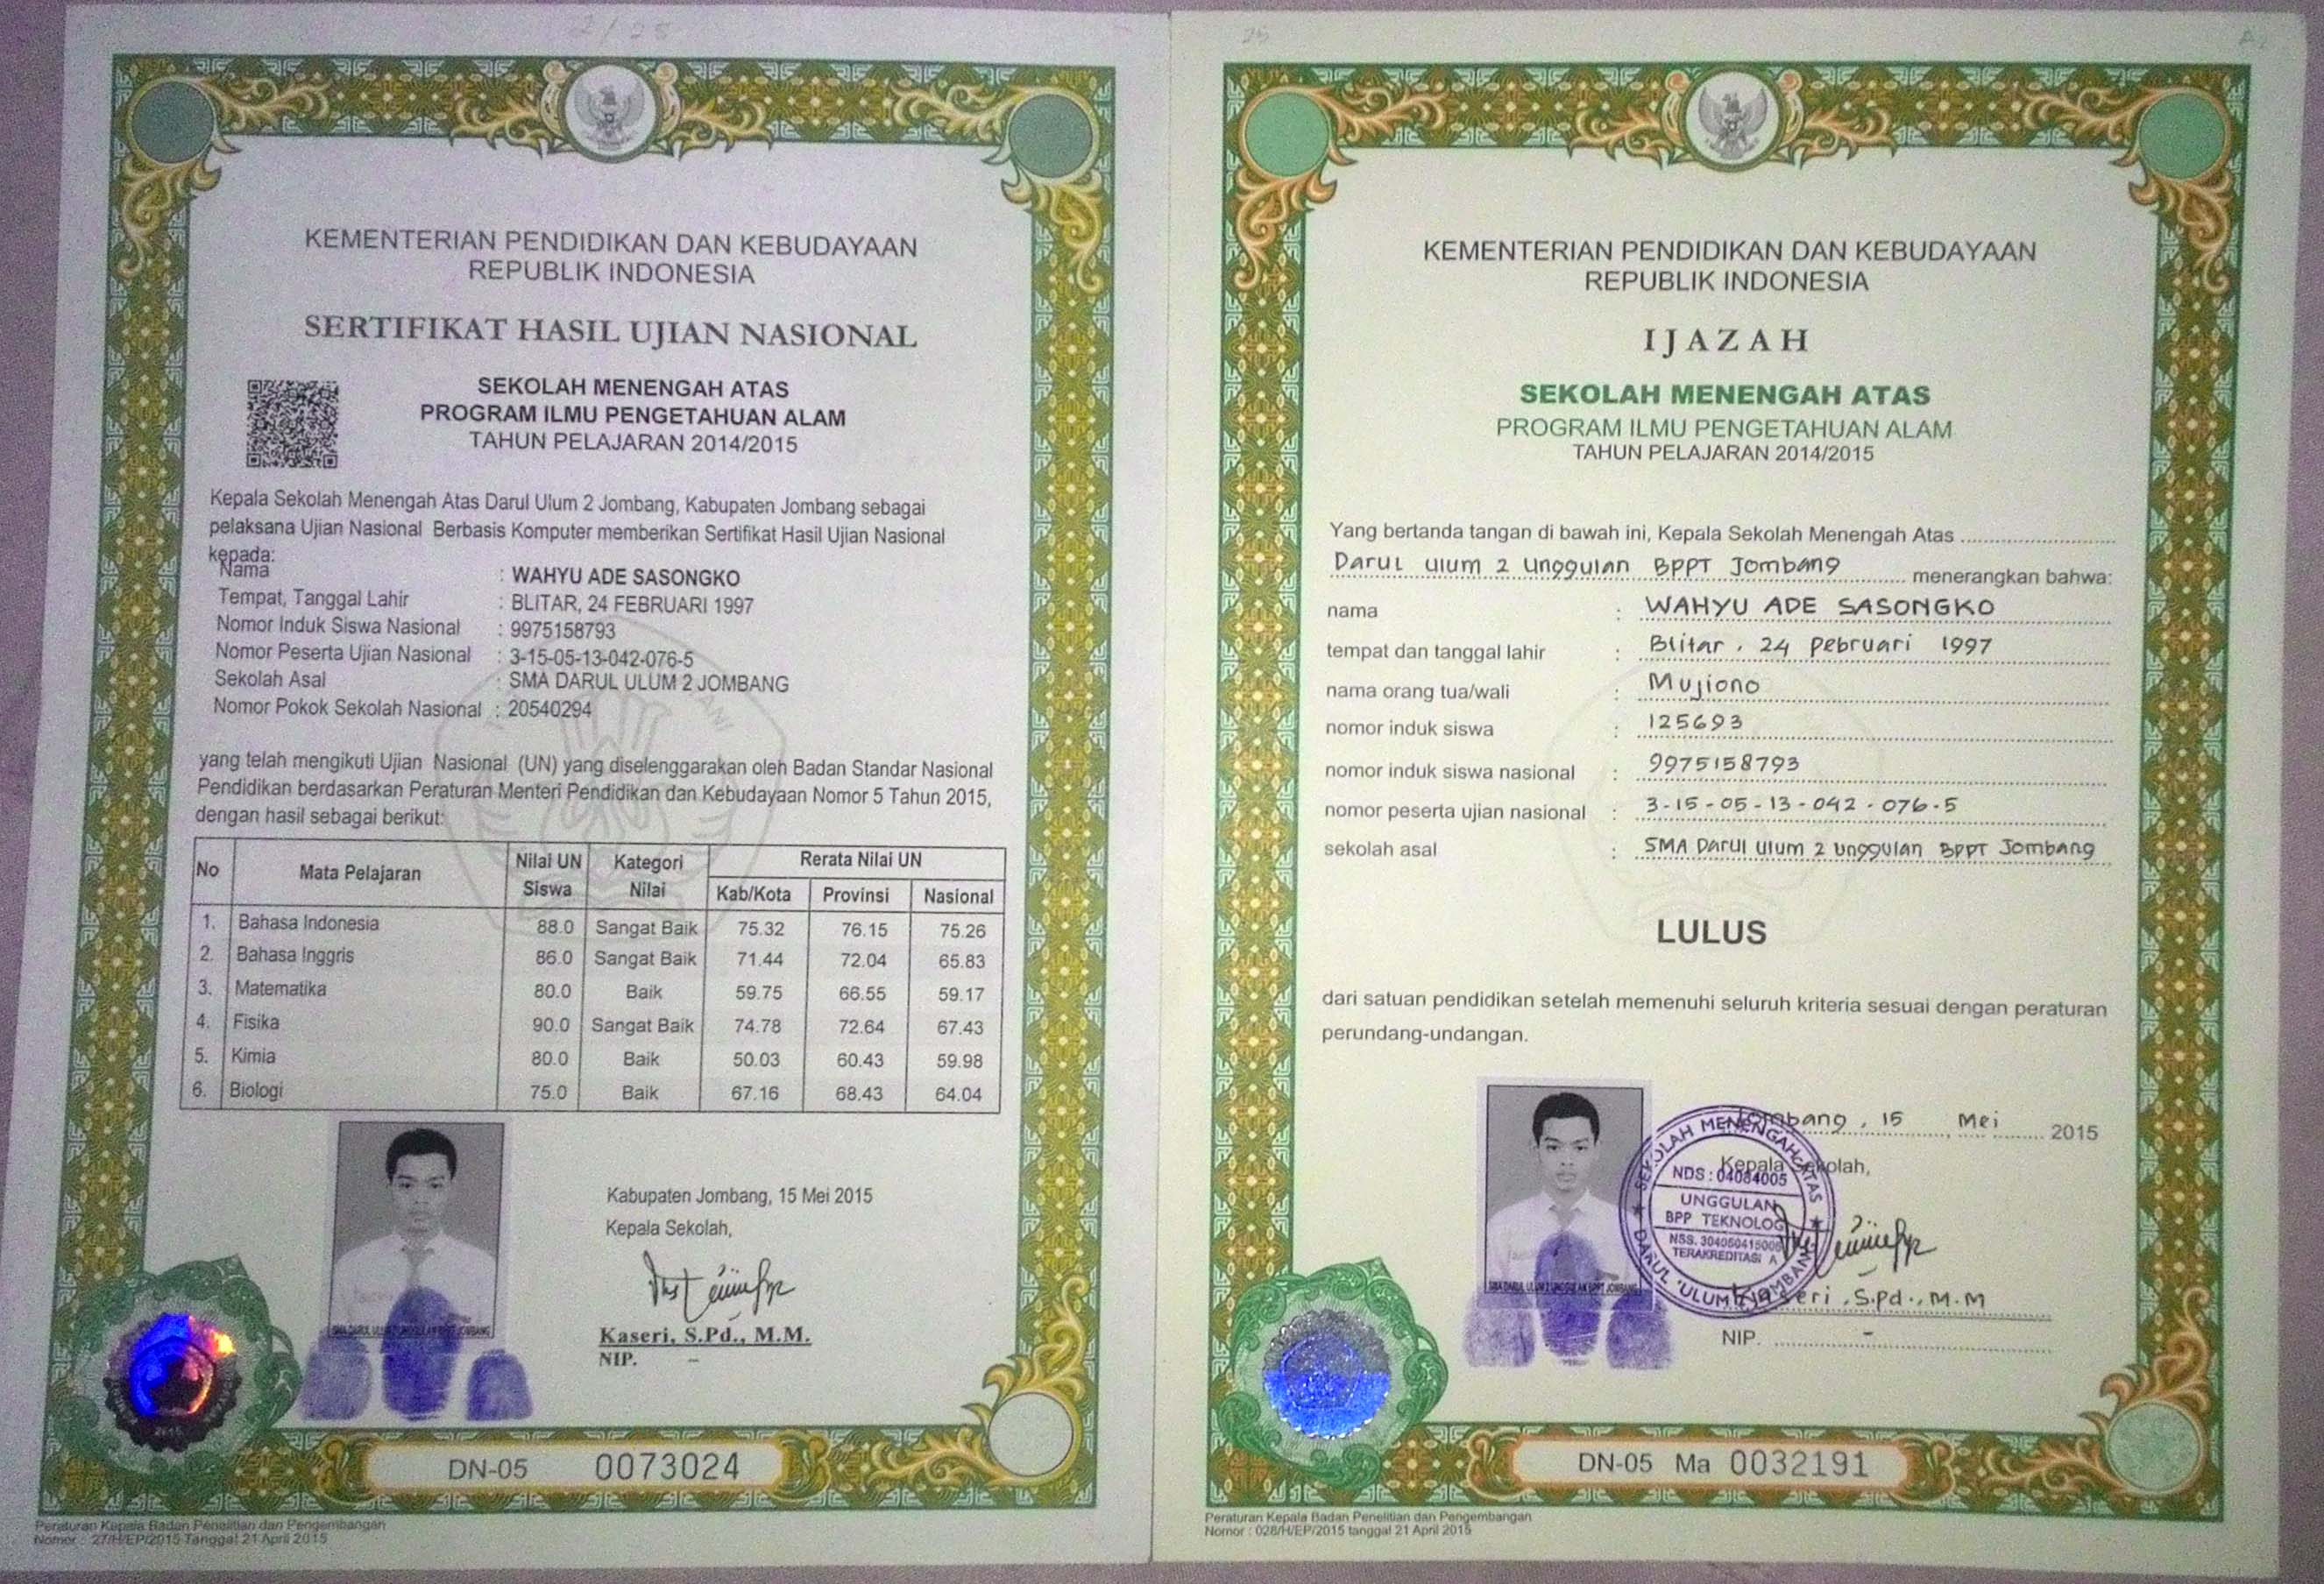 KEMENTERIAN PENDIDIKAN DAN KEBUDAYAAN
REPUBLIK INDONESIA
SERTIFIKAT HASIL UJIAN NASIONAL
SEKOLAH MENENGAH ATAS
PROGRAM ILMU PENGETAHUAN ALAM
TAHUN PELAJARAN 2014/2015
Kepala Sekolah Menengah Atas Darul Ulum 2 Jombang, Kabupaten Jombang sebagai
pelaksana Ujian Nasional Berbasis Komputer memberikan Sertifikat Hasil Ujian Nasional
kepada:
Nama : WAHYU ADE SASONGKO
Tempat, Tanggal Lahir : BLITAR, 24 FEBRUARI 1997
Nomor Induk Siswa Nasional : 9975158793
Nomor Peserta Ujian Nasional : 3-15-05-13-042-076-5
Sekolah Asal : SMA DARUL ULUM 2 JOMBANG
Nomor Pokok Sekolah Nasional : 20540294
yang telah mengikuti Ujian Nasional (UN) yang diselenggarakan oleh Badan Standar Nasional
Pendidikan berdasarkan Peraturan Menteri Pendidikan dan Kebudayaan Nomor 5 Tahun 2015,
dengan hasil sebagai berikut:
No Mata Pelajaran Nilai UN Siswa Kategori Nilai Rerata Nilai UN
Kab/Kota Provinsi Nasional
1. Bahasa Indonesia 88.0 Sangat Baik 75.32 76.15 75.26
2. Bahasa Inggris 86.0 Sangat Baik 71.44 72.04 65.83
3. Matematika 80.0 Baik 59.75 66.55 59.17
4. Fisika 90.0 Sangat Baik 74.78 72.64 67.43
5. Kimia 80.0 Baik 50.03 60.43 59.98
6. Biologi 75.0 Baik 67.16 68.43 64.04
Kabupaten Jombang, 15 Mei 2015
Kepala Sekolah,
SMA DARUL ULUM 2 UNGGULAN BPPT JOMBANG
Kaseri, S.Pd., M.M.
NIP. –
2015
DN-05 0073024
Peraturan Kepala Badan Penelitian dan Pengembangan
Nomor : 27/H/EP/2015 Tanggal 21 April 2015
KEMENTERIAN PENDIDIKAN DAN KEBUDAYAAN
REPUBLIK INDONESIA
IJAZAH
SEKOLAH MENENGAH ATAS
PROGRAM ILMU PENGETAHUAN ALAM
TAHUN PELAJARAN 2014/2015
Yang bertanda tangan di bawah ini, Kepala Sekolah Menengah Atas
Darul Ulum 2 Unggulan BPPT Jombang menerangkan bahwa:
nama : WAHYU ADE SASONGKO
tempat dan tanggal lahir : Blitar, 24 Pebruari 1997
nama orang tua/wali : Mujiono
nomor induk siswa : 125693
nomor induk siswa nasional : 9975158793
nomor peserta ujian nasional : 3-15-05-13-042-076-5
sekolah asal : SMA Darul Ulum 2 Unggulan BPPT Jombang
LULUS
dari satuan pendidikan setelah memenuhi seluruh kriteria sesuai dengan peraturan
perundang-undangan.
Jombang, 15 Mei 2015
Kepala Sekolah,
SEKOLAH MENENGAH ATAS
NDS : 04084005
UNGGULAN
BPP TEKNOLOGI
TERAKREDITASI A
DARUL 'ULUM 2 JOMBANG
SMA DARUL ULUM 2 UNGGULAN BPPT JOMBANG
Kaseri, S.Pd., M.M
NIP. -
DN-05 Ma 0032191
Peraturan Kepala Badan Penelitian dan Pengembangan
Nomor : 028/H/EP/2015 tanggal 21 April 2015